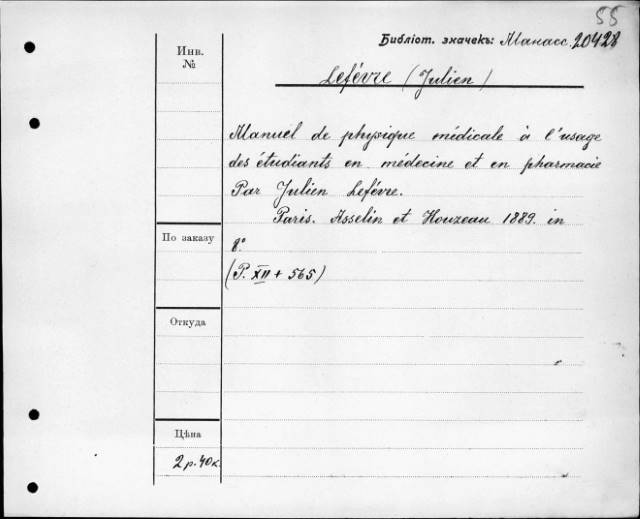 55
Библіот. значекъ: Манасс. 20428
Инв.
№
Lefévre (Julien)
Manuel de physique médicale à l'usage
des étudiants en médecine et en pharmacie
Par Julien Lefévre.
Paris. Asselin et Houzeau 1889. in
8°
(P. XII + 565)
По заказу
Откуда
Цѣна
2 р. 40 к.